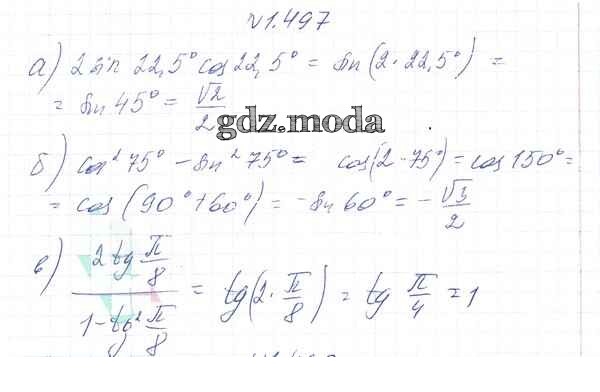 №1.497
а) 2 sin 22,5° cos 22,5° = sin (2·22,5°) =
= sin 45° = √2/2
gdz.moda
б) cos² 75° - sin² 75° = cos(2·75°) = cos 150° =
= cos (90° + 60°) = -sin 60° = -√3/2
в) 2 tg π/8 / 1 - tg² π/8 = tg(2·π/8) = tg π/4 = 1